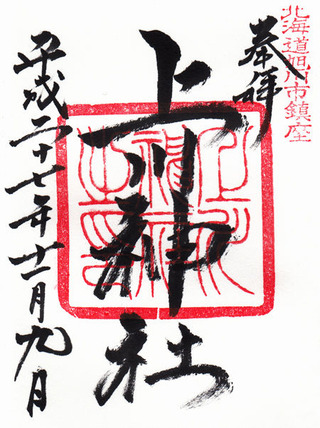 北海道旭川市鎮座
奉拝
上川神社
平成二十七年十一月九月